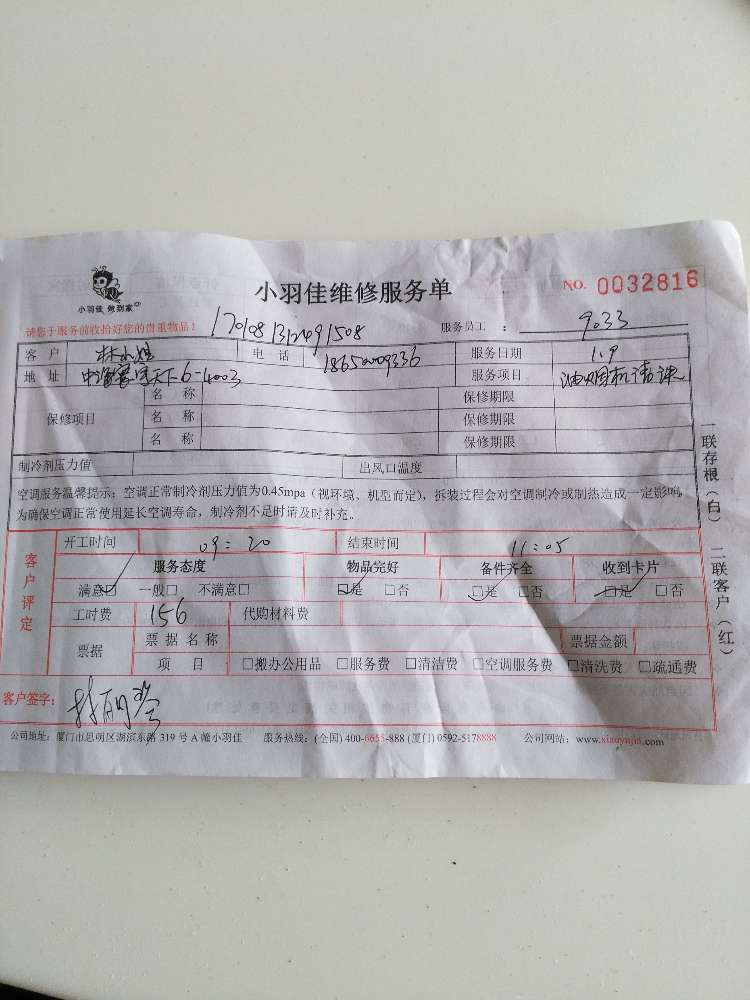 小羽佳 做到家
小羽佳维修服务单
NO. 0032816
请您于服务前收拾好您的贵重物品！
170108131249 1508
服务员工 ： 9033
客 户 林小姐 电 话 18650009336 服务日期 1.9
地 址 6-4003 服务项目 油烟机清洗
保修项目
名 称 保修期限
名 称 保修期限
名 称 保修期限
制冷剂压力值 出风口温度
空调服务温馨提示：空调正常制冷剂压力值为0.45mpa（视环境、机型而定），拆装过程会对空调制冷或制热造成一定影响，
为确保空调正常使用延长空调寿命，制冷剂不足时请及时补充。
客户评定
开工时间 09：20 结束时间 11：05
服务态度 物品完好 备件齐全 收到卡片
满意☑ 一般□ 不满意□ ☑是 □否 ☑是 □否 ☑是 □否
工时费 156 代购材料费
票据 票 据 名 称 票据金额
项 目 □搬办公用品 □服务费 □清洁费 □空调服务费 □清洗费 □疏通费
客户签字：
公司地址：厦门市思明区湖滨东路 319 号 A 幢小羽佳 服务热线：(全国) 400-6655-888 (厦门) 0592-5178888 公司网站：www.xiaoyujia.com
一联存根（白） 二联客户（红）